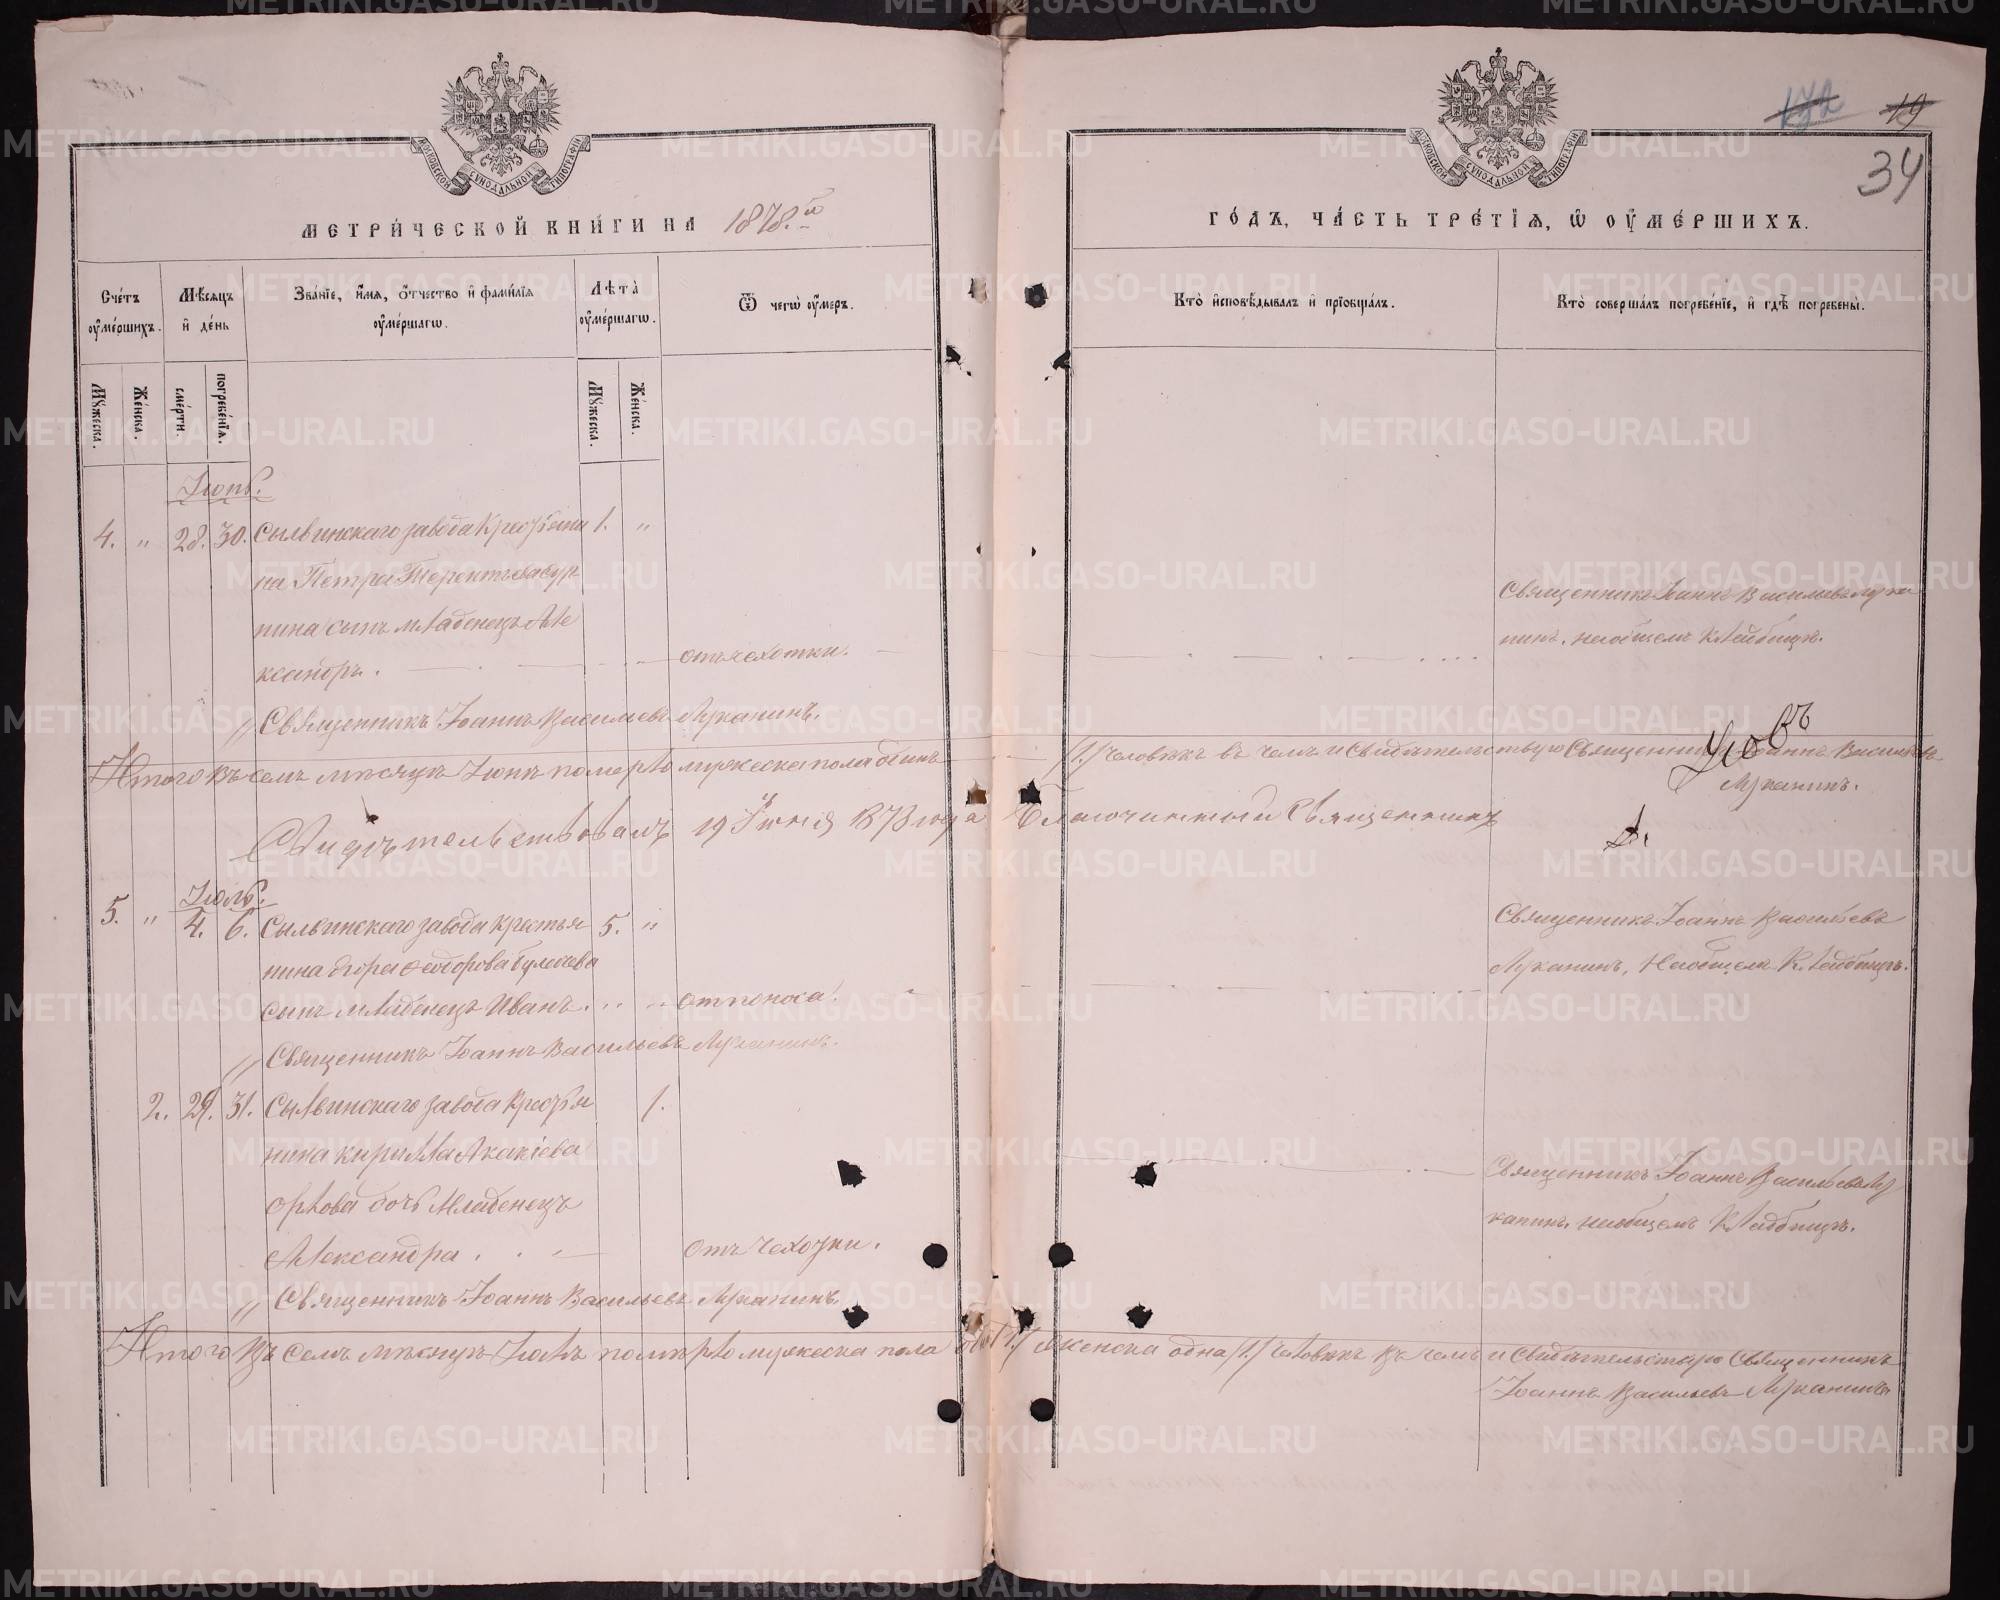 172 19
34
МОСКОВСКОЙ СѴНОДАЛЬНОЙ ТИПОГРАФІИ
МОСКОВСКОЙ СѴНОДАЛЬНОЙ ТИПОГРАФІИ
МЕТРИ́ЧЕСКОЙ КНИ́ГИ НА 1878.й
ГО́ДЪ, ЧА́СТЬ ТРЕ́ТІЯ, Ѡ ОУМЕ́РШИХЪ.
Сче́тъ оумершихъ.
Мѣсяцъ и де́нь
Зва́ніе, и́мя, о́тчество и фами́лія оумершагѡ.
Лѣта̀ оумершагѡ.
Ѿ чегѡ̀ оумеръ.
Кто̀ исповѣдывалъ и пріобща́лъ.
Кто̀ соверша́лъ погребе́ніе, и гдѣ погребены̀.
Мꙋжеска.
Же́нска.
сме́рти.
погребе́нія.
Мꙋжеска.
Же́нска.
Іюнь.
4. " 28. 30. Сылвинскаго завода Крестьяни 1. "
на Петра Терентьева
нина сынъ младенецъ Але
ксандръ. отъ чехотки.
Священникъ Іоаннъ Васильевъ Лука
нинъ, на общемъ кладбищѣ.
Священникъ Іоаннъ Васильевъ Луканинъ.
Итого въ семъ мѣсяцѣ Іюнѣ померло мужеска пола одинъ /1/ человѣкъ въ чемъ и свидѣтельствую Священникъ Іоаннъ Васильевъ
Луканинъ.
Свидѣтельствовалъ 19 Іюня 1878 года Благочинный Священникъ
Іюль.
5. " 4. 6. Сылвинскаго завода крестья 5. "
нина Егора Ѳеодорова
сынъ младенецъ Иванъ. отъ поноса.
Священникъ Іоаннъ Васильевъ
Луканинъ, на общемъ кладбищѣ.
Священникъ Іоаннъ Васильевъ Луканинъ.
2. 29. 31. Сылвинскаго завода Крестья 1.
нина Кирилла Акакіева
Орлова дочь младенецъ
Александра. отъ чехотки.
Священникъ Іоаннъ Васильевъ Лу
канинъ, на общемъ кладбищѣ.
Священникъ Іоаннъ Васильевъ Луканинъ.
Итого въ семъ мѣсяцѣ Іюлѣ померло мужеска пола /1/ женска одна /1/ человѣкъ въ чемъ и свидѣтельствую Священникъ
Іоаннъ Васильевъ Луканинъ
METRIKI.GASO-URAL.RU